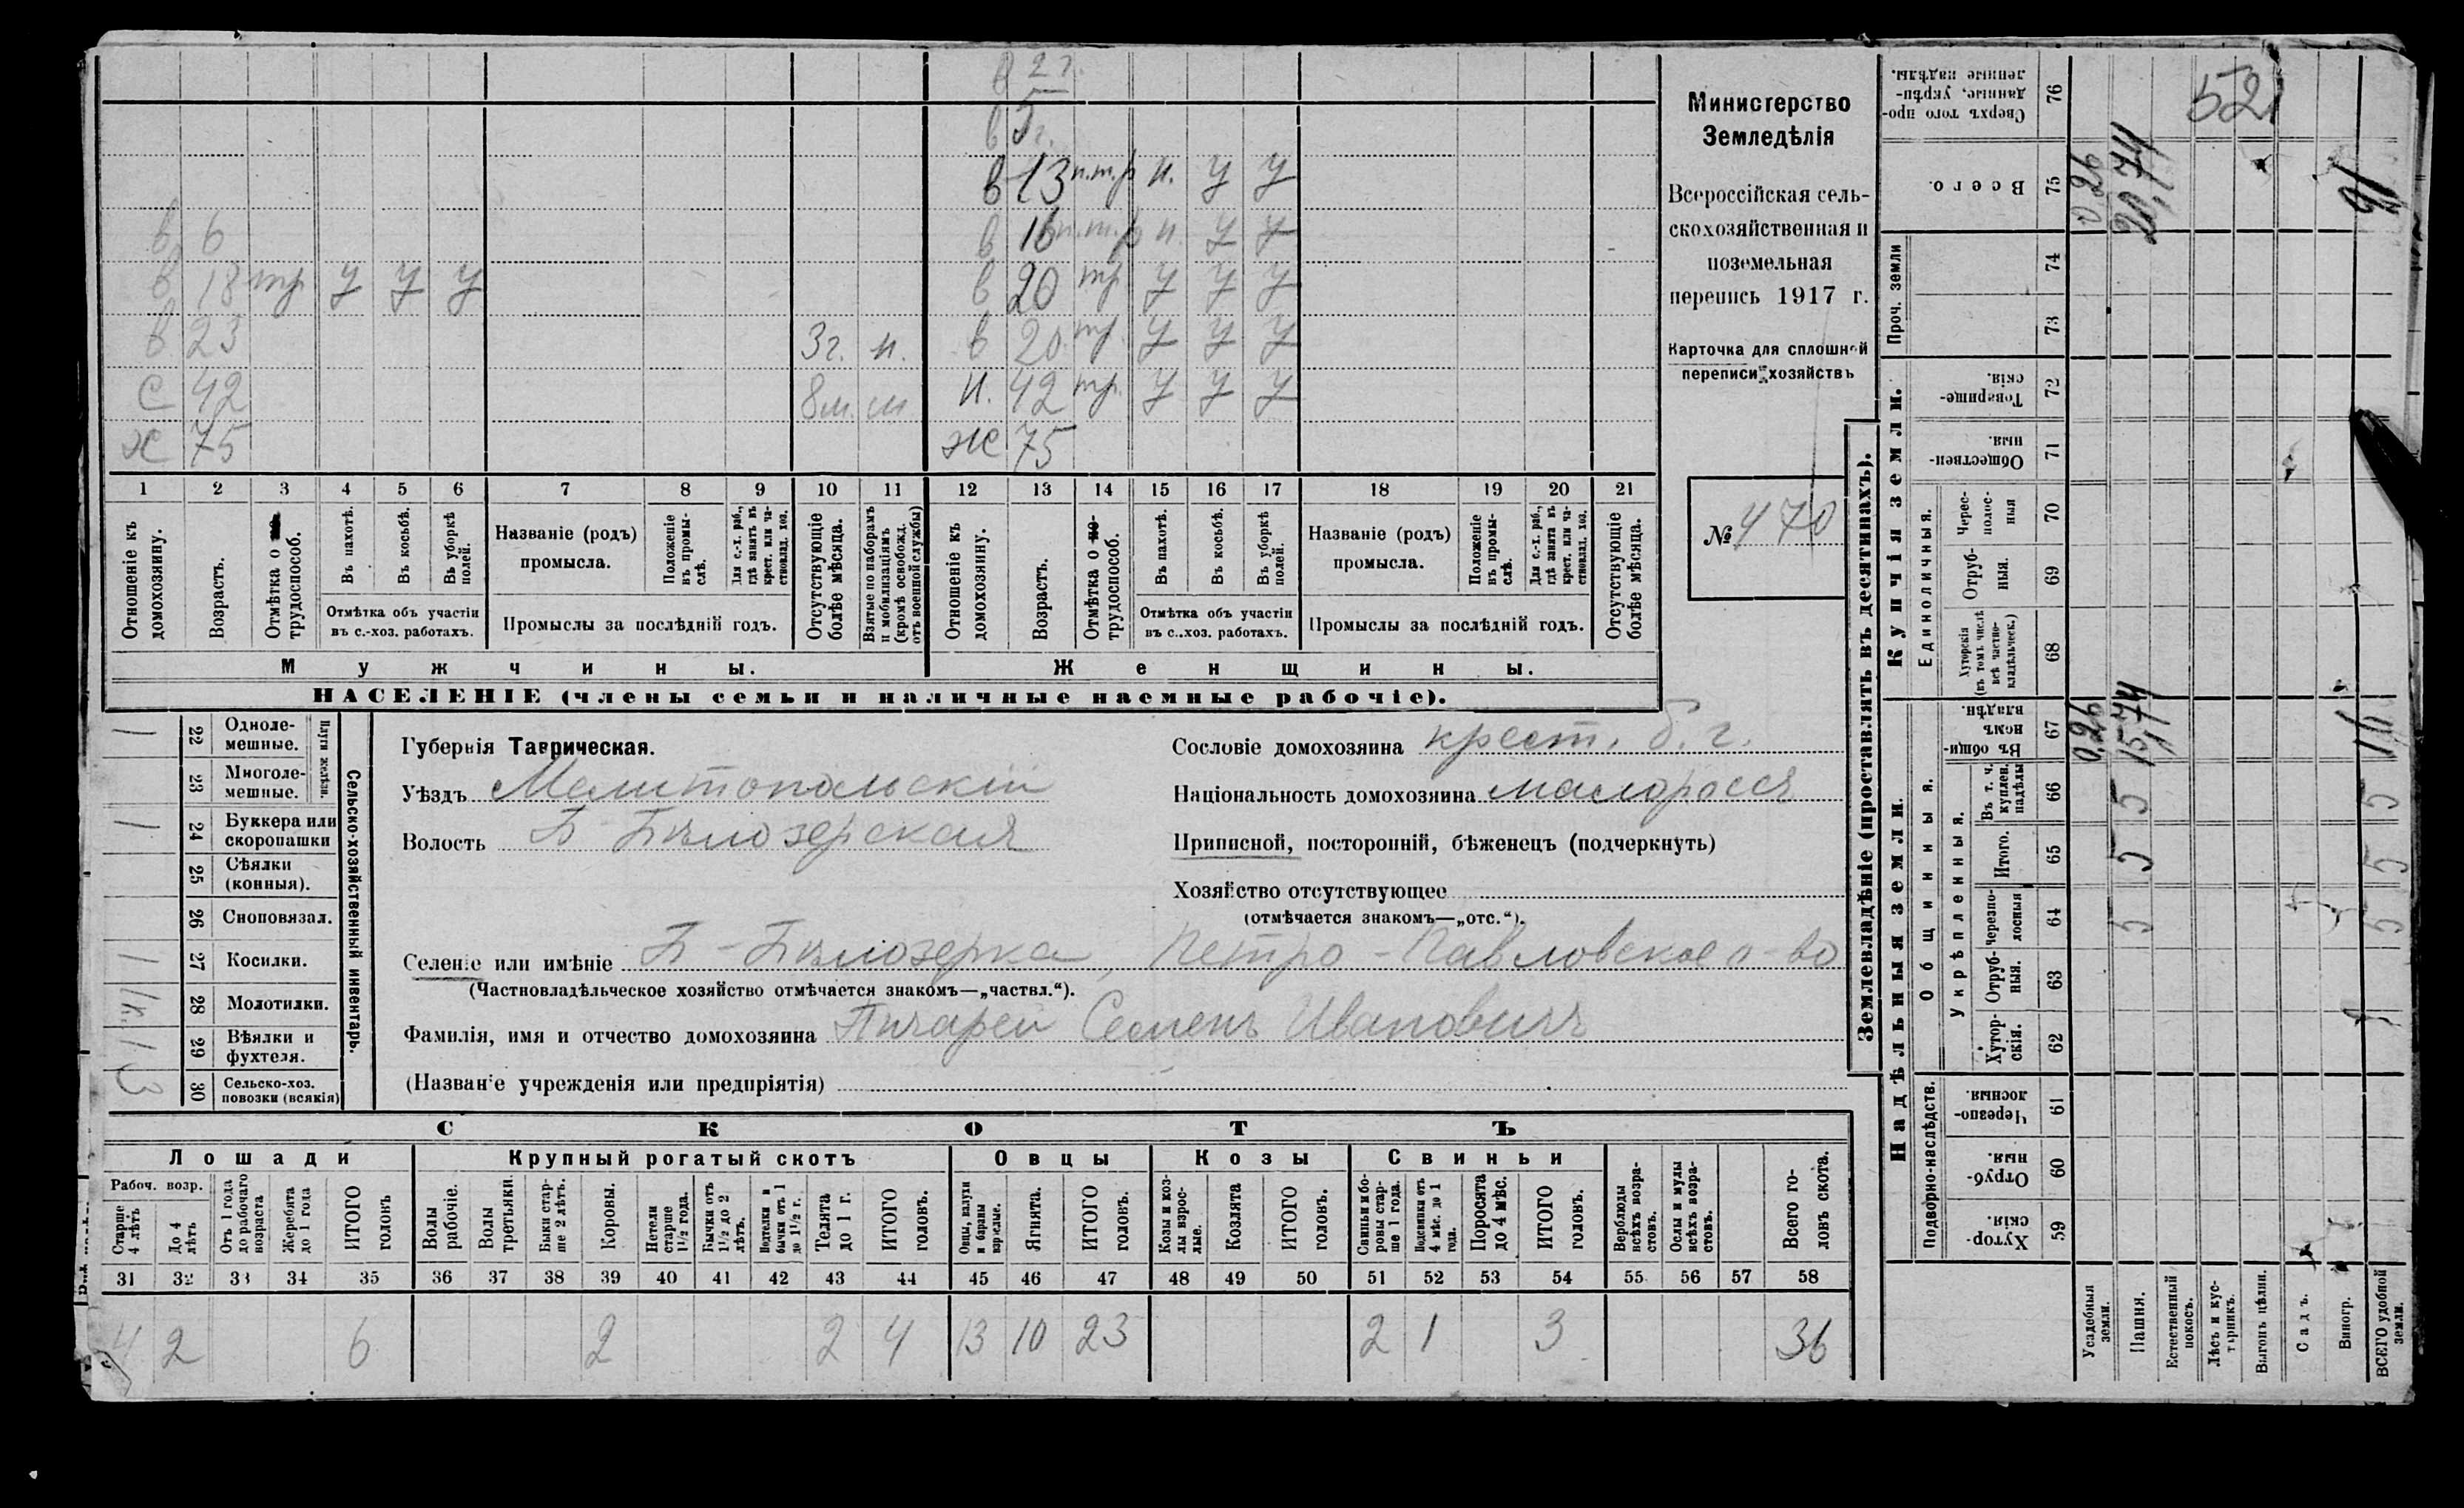 в 2 г.
в 5 г.
в 13 п.т.р н. у у
в 6 в 16 п.т.р н. у у
в 18 тр у у у в 20 тр у у у
в 23 3г. н. в 20 тр. у у у
с 42 8м. н. 42 тр. у у у
ж 75 ж 75
1 2 3 4 5 6 7 8 9 10 11 12 13 14 15 16 17 18 19 20 21
Отношеніе къ домохозяину.
Возрастъ.
Отмѣтка о трудоспособ.
Въ пахотѣ.
Въ косьбѣ.
Въ уборкѣ полей.
Отмѣтка объ участіи въ с.-хоз. работахъ.
Названіе (родъ) промысла.
Положеніе въ промыслѣ.
Для с.-х. раб., гдѣ занятъ въ крест. или частновлад. хоз.
Промыслы за послѣдній годъ.
Отсутствующіе болѣе мѣсяца.
Взятые по наборамъ и мобилизаціямъ (кромѣ освобожд. отъ военной службы)
Отношеніе къ домохозяину.
Возрастъ.
Отмѣтка о трудоспособ.
Въ пахотѣ.
Въ косьбѣ.
Въ уборкѣ полей.
Отмѣтка объ участіи въ с.-хоз. работахъ.
Названіе (родъ) промысла.
Положеніе въ промыслѣ.
Для с.-х. раб., гдѣ занята въ крест. или частновлад. хоз.
Промыслы за послѣдній годъ.
Отсутствующіе болѣе мѣсяца.
Мужчины. Женщины.
НАСЕЛЕНІЕ (члены семьи и наличные наемные рабочіе).
Министерство
Земледѣлія
Всероссійская сель-
скохозяйственная и
поземельная
перепись 1917 г.
Карточка для сплошной
переписи хозяйствъ
№ 470
Сельско-хозяйственный инвентарь.
Плуги желѣзн.
1 22 Одноле-мешные.
23 Многоле-мешные.
1 24 Буккера или скоропашки
25 Сѣялки (конныя).
26 Сноповязал.
1 27 Косилки.
1к. 28 Молотилки.
1 29 Вѣялки и фухтеля.
3 30 Сельско-хоз. повозки (всякія)
Губернія Таврическая.
Уѣздъ Мелитопольскій
Волость Б-Бѣлозерская
Сословіе домохозяина крест. б. г.
Національность домохозяина малоросъ
Приписной, посторонній, бѣженецъ (подчеркнуть)
Хозяйство отсутствующее
(отмѣчается знакомъ—„отс.“).
Селеніе или имѣніе Б-Бѣлозерка, Петро-Павловское о-во
(Частновладѣльческое хозяйство отмѣчается знакомъ—„частвл.“).
Фамилія, имя и отчество домохозяина Семенъ Ивановичъ
(Названіе учрежденія или предпріятія)
СКОТЪ
Лошади Крупный рогатый скотъ Овцы Козы Свиньи
Рабоч. возр.
Старше 4 лѣтъ
До 4 лѣтъ
Отъ 1 года до рабочаго возраста
Жеребята до 1 года
ИТОГО головъ
Волы рабочіе.
Волы третьяки.
Быки старше 2 лѣтъ.
Коровы.
Нетели старше 1½ года.
Бычки отъ 1½ до 2 лѣтъ.
Подтелки и бычки отъ 1 до 1½ г.
Телята до 1 г.
ИТОГО головъ.
Овцы, валухи и бараны взрослые.
Ягнята.
ИТОГО головъ.
Козы и козлы взрослые.
Козлята
ИТОГО головъ.
Свиньи и боровы старше 1 года.
Подсвинки отъ 4 мѣс. до 1 года.
Поросята до 4 мѣс.
ИТОГО головъ.
Верблюды всѣхъ возрастовъ.
Ослы и мулы всѣхъ возрастовъ.
Всего головъ скота.
31 32 33 34 35 36 37 38 39 40 41 42 43 44 45 46 47 48 49 50 51 52 53 54 55 56 57 58
4 2 6 2 2 4 13 10 23 2 1 3 36
Землевладѣніе (проставлять въ десятинахъ).
Надѣльныя земли. Купчія земли. Проч. земли
Подворно-наслѣдств.
Общинныя.
Укрѣпленныя.
Единоличныя.
59 Хутор-скія.
60 Отруб-ныя.
61 Черезпо-лосныя.
62 Хутор-скія.
63 Отруб-ныя.
64 Черезпо-лосныя
65 Итого.
66 Въ т. ч. куплен. надѣлы
67 Въ общин-номъ владѣн.
68 Хуторскія (въ томъ числѣ всѣ частно-владѣльческ.)
69 Отруб-ныя.
70 Черес-полос-ныя
71 Обществен-ныя.
72 Товарище-скія.
73
74
75 Всего.
76 Сверхъ того про-данные, укрѣп-ленные надѣлы.
Усадебныя земли. 0,26 0,26
Пашня. 5 5 5 15,74 20,74
Естественный покосъ.
Лѣсъ и кус-тарникъ.
Выгонъ цѣлин.
Садъ.
Виногр.
ВСЕГО удобной земли. 5 5 5
521